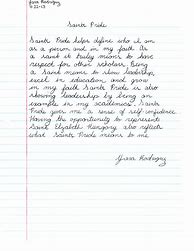 9-22-13
Saints Pride
Saints Pride helps define who I am
as a person and in my faith. As
a Saint it truley means to have
respect for other scholars. Being
a Saint means to show leadership,
excel in education, and grow
in my faith. Saints Pride is also
showing leadership by being an
example in my academics. Saints
Pride gives me a sense of self confidence.
Having the opportunity to represents
Saint Elizabeth Hungary also reflects
what Saints Pride means to me.